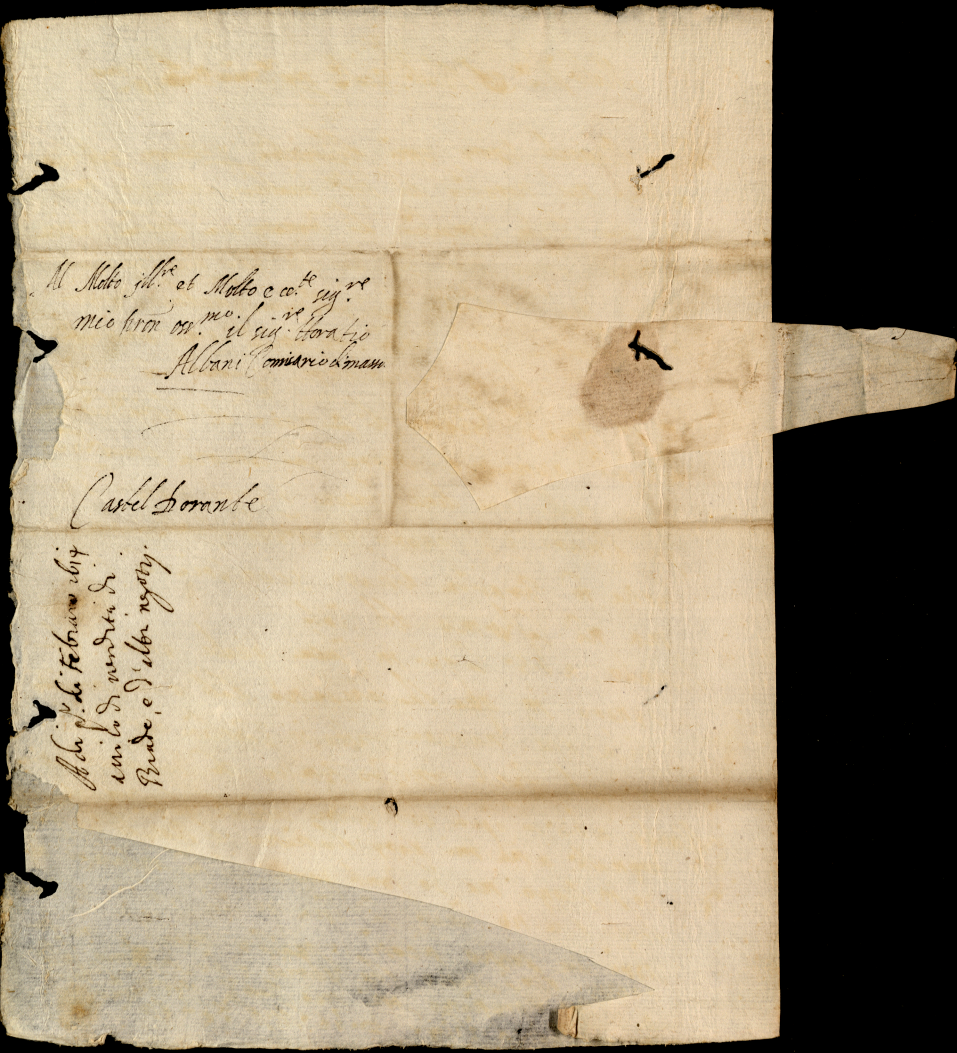 Al Molto Ill.re et Molto ecc.te sig.re
mio pron oss.mo il sig.re Horatio
Albani Comisario di massa
Castel Dorante
A di p.o di Febraro 1614
aviso di vendita di
Biade, e d'altri negotij.